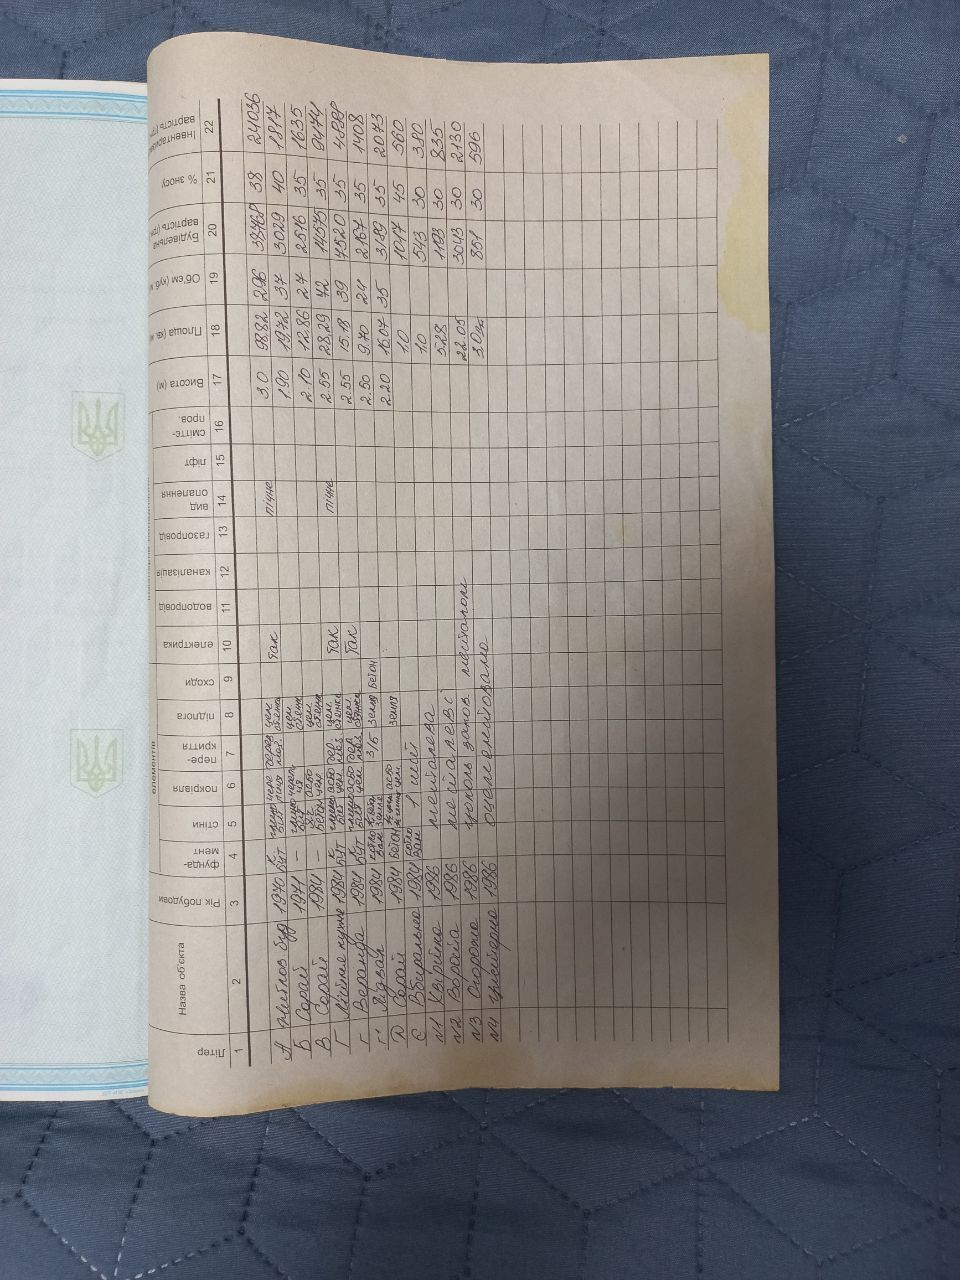 Літер Назва об'єкта Рік побудови фунда-мент стіни покрівля пере-криття підлога сходи електрика водопровід каналізація газопровід вид опалення ліфт сміттє-пров. Висота (м) Площа (кв. м Об'єм (куб. м Будівельна вартість (грн Інвентариза вартість (гр
% зносу
1 2 3 4 5 6 7 8 9 10 11 12 13 14 15 16 17 18 19 20 21 22
А Житлов буд 1970 к бут цем. так пічне 3.0 98.82 296 38768 38 24036
Б Сарай 1971 – цем. 1.90 19.72 37 3029 40 1817
В Сарай 1984 – цем. 2.10 12.86 27 2516 35 1635
Г Літне кухня 1984 к бут цем. так пічне 2.55 28.29 72 14575 35 9474
г Веранда 1984 к бут цем. так 2.55 15.18 39 4520 35
г' Підвал 1984 з/б земля бетон 2.50 9.70 24 2167 35 1408
Д Сарай 1984 бетон земля 2.20 16.07 35 3189 35 2073
Є Вбиральня 1984 1 1.0 1017 45 560
N1 Хвіртка 1986 металева 1.0 543 30 380
N2 Ворота 1986 металеві 5.28 1193 30 835
N3 Огорожа 1986 цоколь запов. металопл 22.05 3043 30 2130
N4 1986 851 30 596